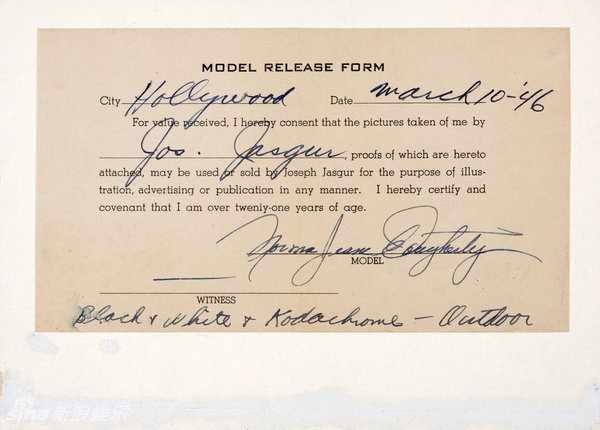 MODEL RELEASE FORM
City Hollywood Date March 10-'46
For value received, I hereby consent that the pictures taken of me by
Jos. Jasgur, proofs of which are hereto
attached, may be used or sold by Joseph Jasgur for the purpose of illus-
tration, advertising or publication in any manner. I hereby certify and
covenant that I am over twenty-one years of age.
Norma Jeane Dougherty
MODEL
WITNESS
Black & White & Kodachrome — Outdoor
sina新浪娱乐